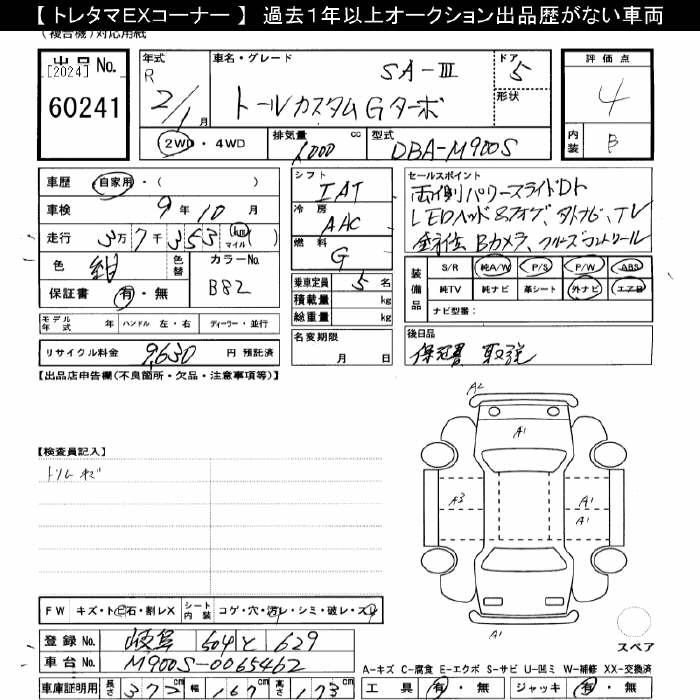 【 トレタマEXコーナー 】 過去１年以上オークション出品歴がない車両
(複合機)対応用紙
出品 No. [2024] 60241
年式 R 2/1月
車名・グレード SA-Ⅲ トールカスタムGターボ
ドア 5 形状
評価点 4
内装 B
2WD・4WD 排気量 1000 cc 型式 DBA-M900S
車歴 自家用・( )
車検 9年 10月
走行 3万 7千 353 (km マイル)( )
色 紺 色替 カラーNo. B82
保証書 有・無
シフト IAT
冷房 AAC
燃料 G
乗車定員 5 名
積載量 kg
総重量 kg
名変期限 月 日
セールスポイント
両側パワースライドDr
LEDヘッド&フォグ 外ナビ、TV
全方位 Bカメラ、クルーズコントロール
装備品 S/R 純A/W P/S P/W ABS
純TV 純ナビ 革シート 外ナビ エアB
ナビ型番：
モデル年式 年 ハンドル 左・右 ディーラー・並行
リサイクル料金 9,630 円 預託済
後日品
保証書 取説
【出品店申告欄(不良箇所・欠品・注意事項等)】
【検査員記入】
トリム キズ
A2
A1
A3
A1
A1
A1
FW キズ・トビ石・割レX シート内装 コゲ・穴・汚レ・シミ・破レ・スレ
登録 No. 岐阜 504 と 629
車台 No. M900S-0065462
車庫証明用 長さ 372cm 幅 167cm 高さ 173cm
スペア
A-キズ C-腐食 E-エクボ S-サビ U-凹ミ W-補修 XX-交換済
工具 有・無 ジャッキ 有・無